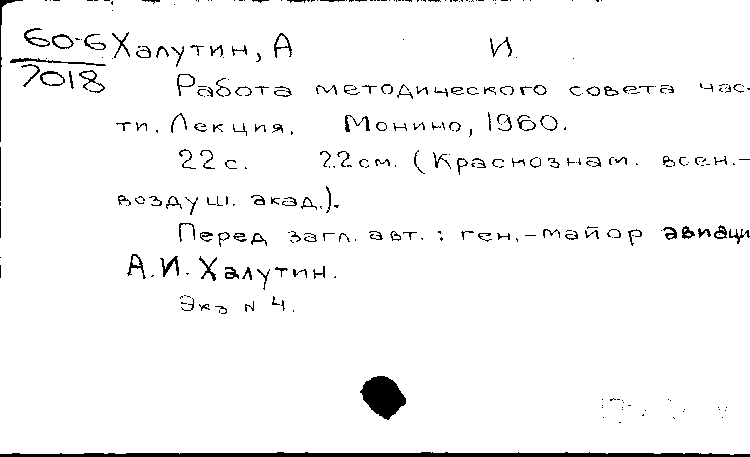 60-6 Халутин, А И
7018
Работа методического совета час-
ти. Лекция. Монино, 1960.
22 с. 22 см. (Краснознам. воен.-
воздуш. акад.).
Перед загл. авт.: ген.-майор авиаци
А.И. Халутин.
Экз N 4.